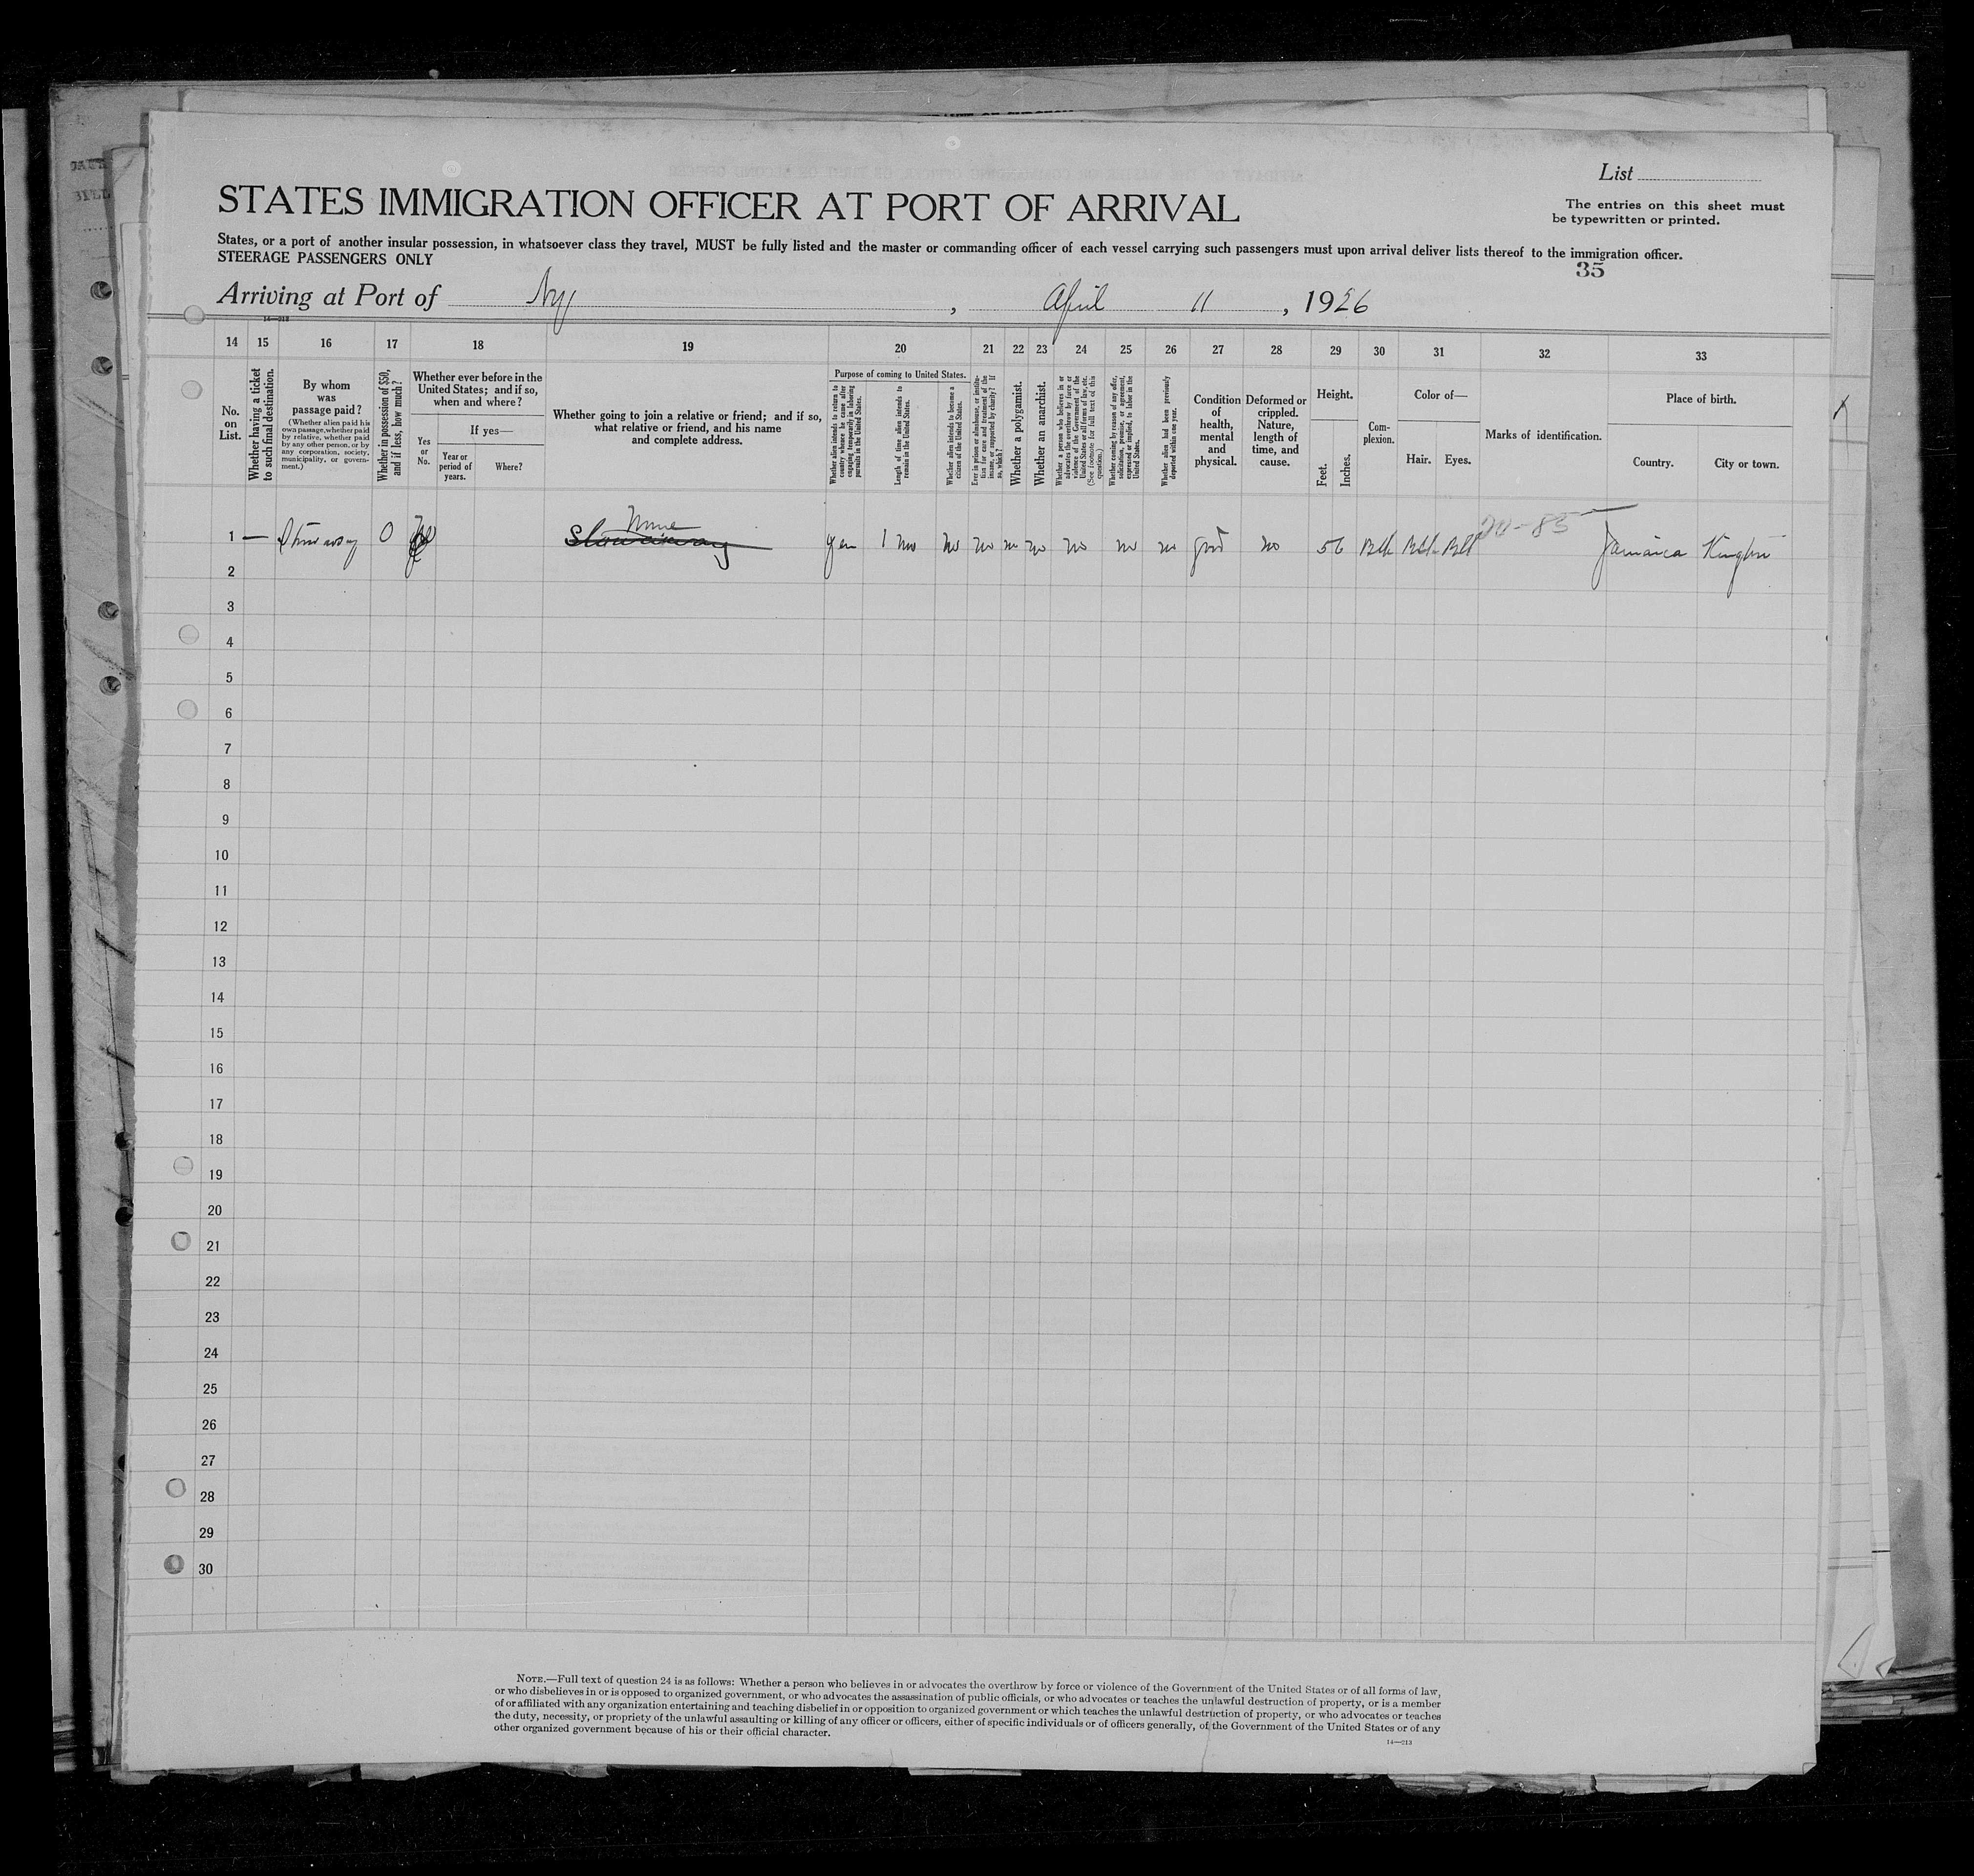 List
STATES IMMIGRATION OFFICER AT PORT OF ARRIVAL
The entries on this sheet must
be typewritten or printed.
States, or a port of another insular possession, in whatsoever class they travel, MUST be fully listed and the master or commanding officer of each vessel carrying such passengers must upon arrival deliver lists thereof to the immigration officer.
STEERAGE PASSENGERS ONLY
35
Arriving at Port of Ny, April 11, 1926
14—213
14 15 16 17 18 19 20 21 22 23 24 25 26 27 28 29 30 31 32 33
No.
on
List.
Whether having a ticket
to such final destination.
By whom
was
passage paid?
(Whether alien paid his
own passage, whether paid
by relative, whether paid
by any other person, or by
any corporation, society,
municipality, or govern-
ment.)
Whether in possession of $50,
and if less, how much?
Whether ever before in the
United States; and if so,
when and where?
Yes
or
No.
If yes—
Year or
period of
years.
Where?
Whether going to join a relative or friend; and if so,
what relative or friend, and his name
and complete address.
Purpose of coming to United States.
Whether alien intends to return to
country whence he came after
engaging temporarily in laboring
pursuits in the United States.
Length of time alien intends to
remain in the United States.
Whether alien intends to become a
citizen of the United States.
Ever in prison or almshouse, or institu-
tion for care and treatment of the
insane, or supported by charity? If
so, which?
Whether a polygamist.
Whether an anarchist.
Whether a person who believes in or
advocates the overthrow by force or
violence of the Government of the
United States or all forms of law, etc.
(See footnote for full text of this
question.)
Whether coming by reason of any offer,
solicitation, promise, or agreement,
expressed or implied, to labor in the
United States.
Whether alien had been previously
deported within one year.
Condition
of
health,
mental
and
physical.
Deformed or
crippled.
Nature,
length of
time, and
cause.
Height.
Feet.
Inches.
Com-
plexion.
Color of—
Hair. Eyes.
Marks of identification.
Place of birth.
Country.
City or town.
None
1 — Stowaway 0 Stowaway yes 1 mo no no no no no no no good no 5 6 Blk Blk Blk Jamaica Kingston
2
3
4
5
6
7
8
9
10
11
12
13
14
15
16
17
18
19
20
21
22
23
24
25
26
27
28
29
30
NOTE.—Full text of question 24 is as follows: Whether a person who believes in or advocates the overthrow by force or violence of the Government of the United States or of all forms of law,
or who disbelieves in or is opposed to organized government, or who advocates the assassination of public officials, or who advocates or teaches the unlawful destruction of property, or is a member
of or affiliated with any organization entertaining and teaching disbelief in or opposition to organized government or which teaches the unlawful destruction of property, or who advocates or teaches
the duty, necessity, or propriety of the unlawful assaulting or killing of any officer or officers, either of specific individuals or of officers generally, of the Government of the United States or of any
other organized government because of his or their official character.
14—213